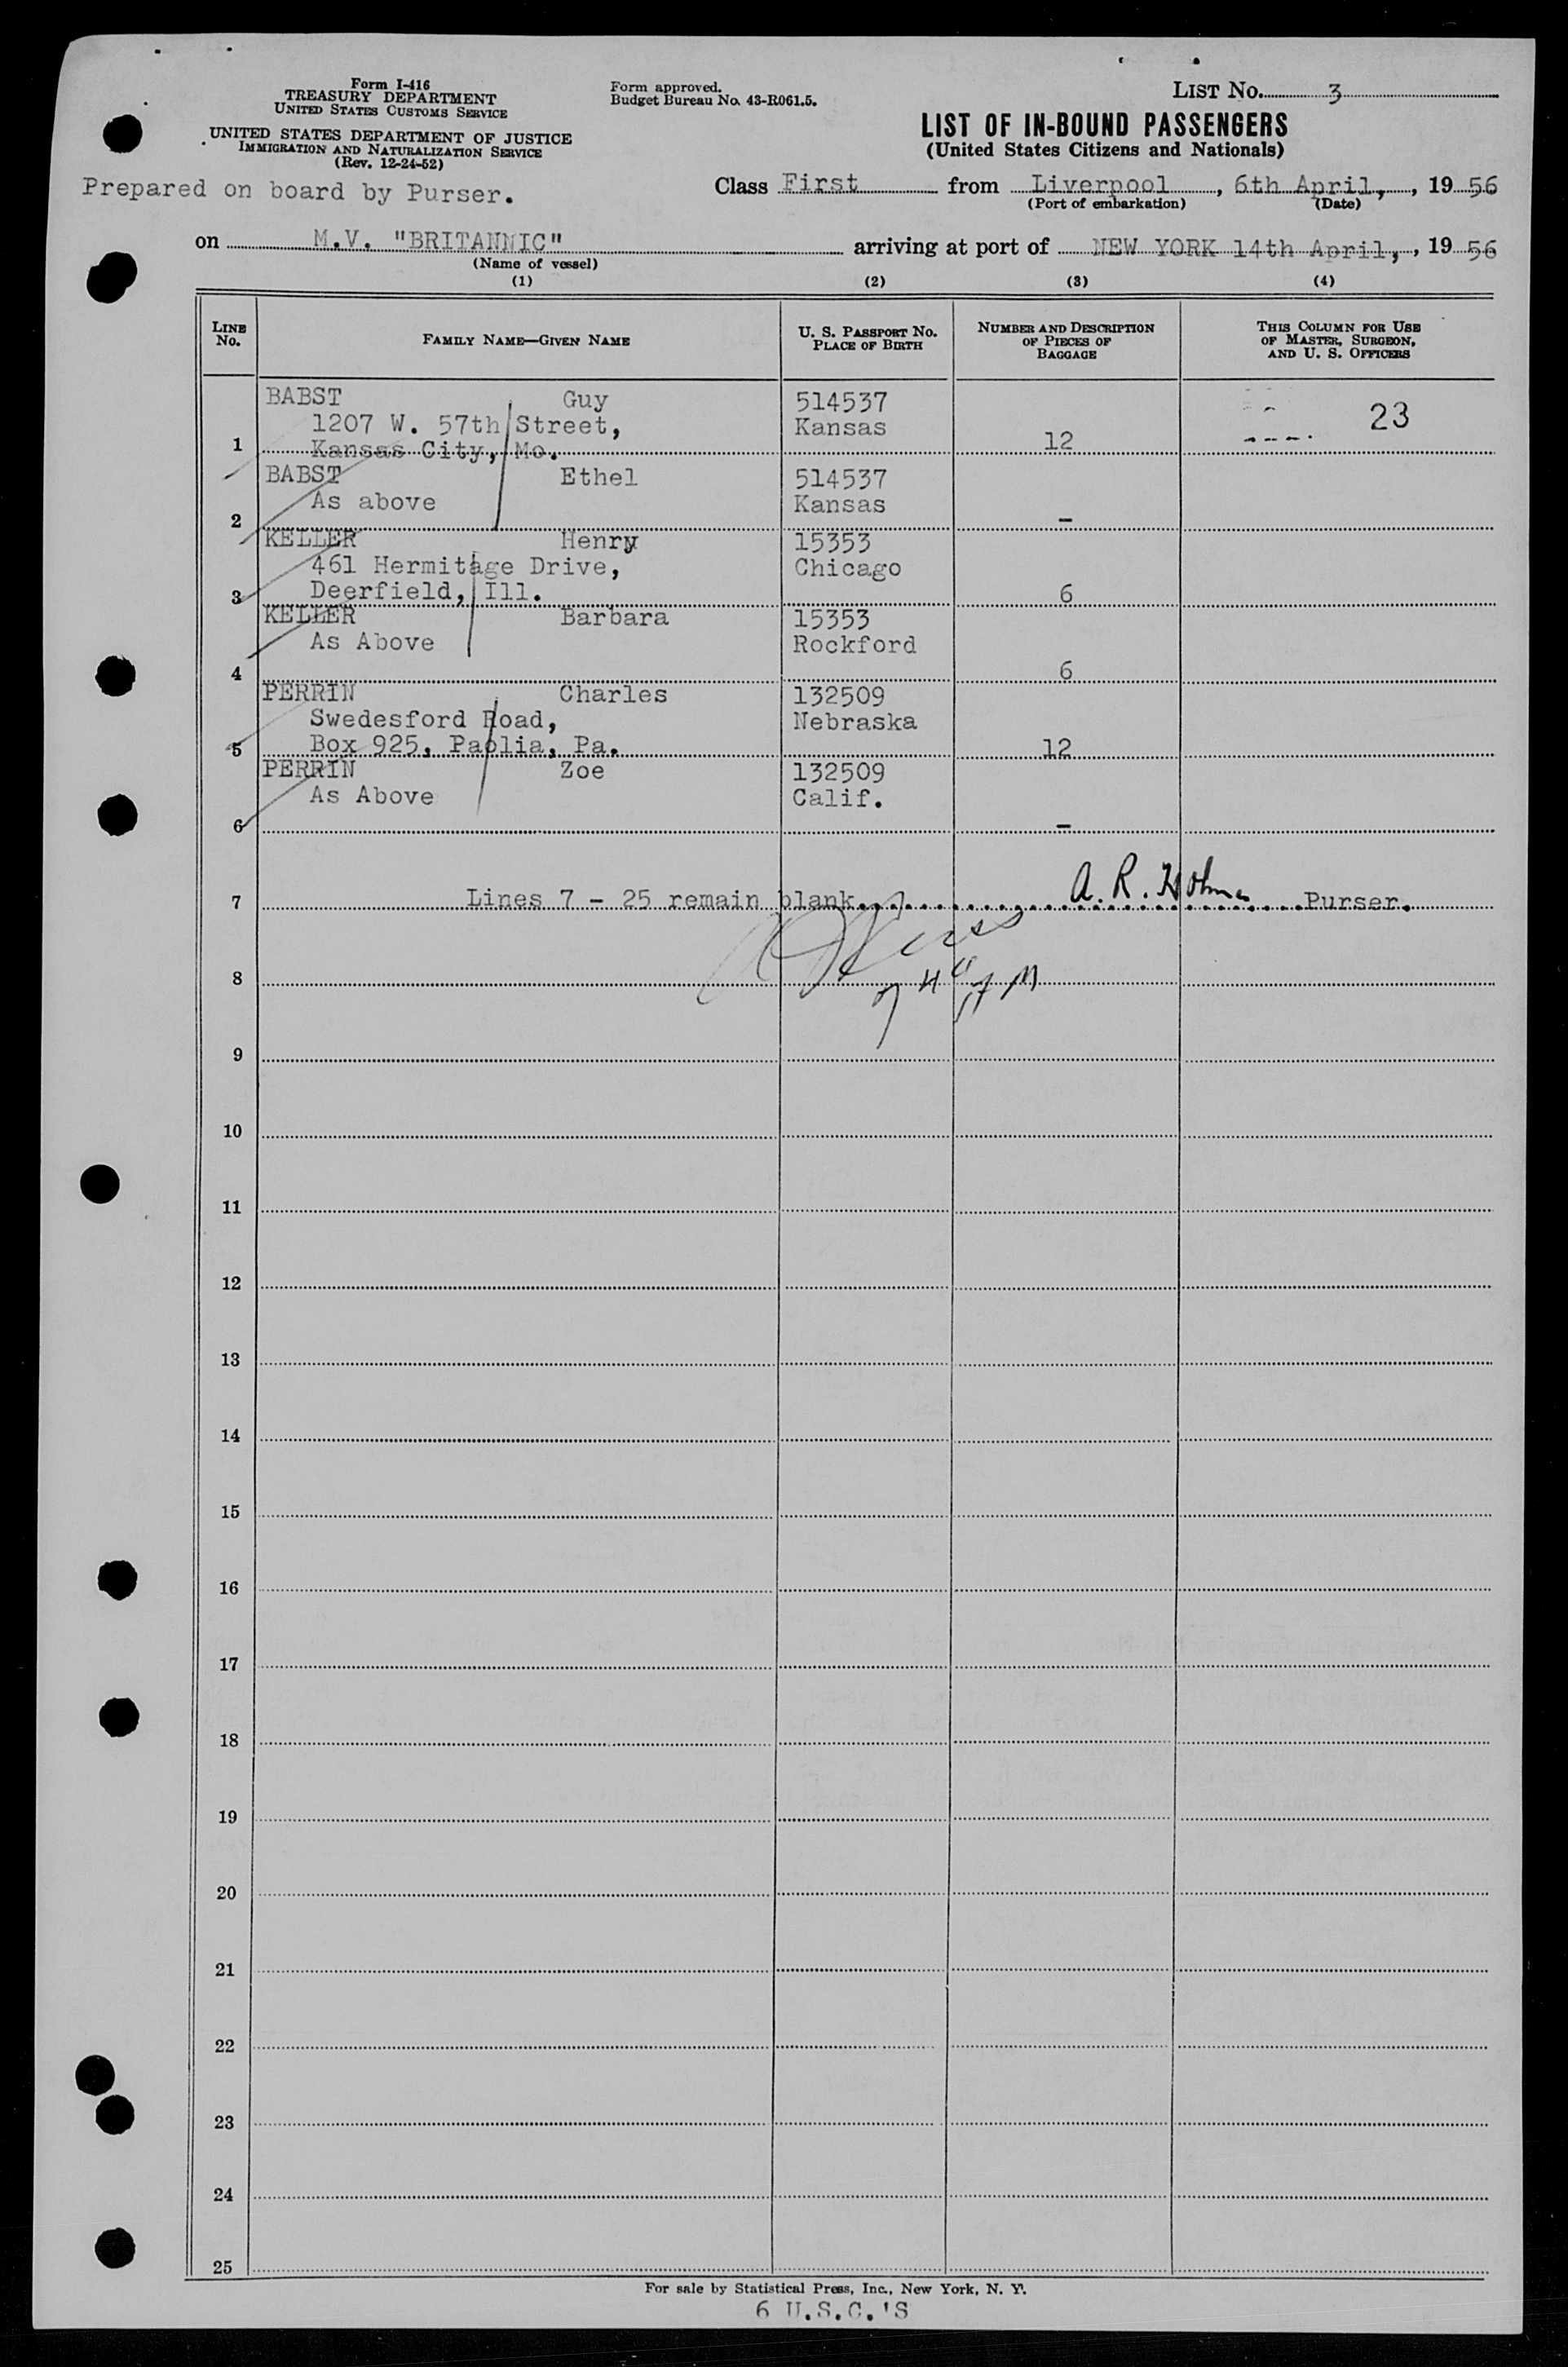 Form I-416
TREASURY DEPARTMENT
UNITED STATES CUSTOMS SERVICE
UNITED STATES DEPARTMENT OF JUSTICE
IMMIGRATION AND NATURALIZATION SERVICE
(Rev. 12-24-52)
Form approved.
Budget Bureau No. 43-R061.5.
LIST No. 3
LIST OF IN-BOUND PASSENGERS
(United States Citizens and Nationals)
Prepared on board by Purser.
Class First from Liverpool, 6th April, , 19 56
(Port of embarkation) (Date)
on M.V. "BRITANNIC" arriving at port of NEW YORK 14th April, , 19 56
(Name of vessel)
(1) (2) (3) (4)
LINE No. FAMILY NAME—GIVEN NAME U. S. PASSPORT No. PLACE OF BIRTH NUMBER AND DESCRIPTION OF PIECES OF BAGGAGE THIS COLUMN FOR USE OF MASTER, SURGEON, AND U. S. OFFICERS
BABST Guy 514537
1207 W. 57th Street, Kansas 23
1 Kansas City, Mo. 12
BABST Ethel 514537
As above Kansas
2 –
KELLER Henry 15353
461 Hermitage Drive, Chicago
3 Deerfield, Ill. 6
KELLER Barbara 15353
As Above Rockford
4 6
PERRIN Charles 132509
Swedesford Road, Nebraska
5 Box 925, Paolia, Pa. 12
PERRIN Zoe 132509
As Above Calif.
6 –
7 Lines 7 – 25 remain blank. A. R. Purser.
8
9
10
11
12
13
14
15
16
17
18
19
20
21
22
23
24
25
For sale by Statistical Press, Inc., New York, N. Y.
6 U.S.C.'S